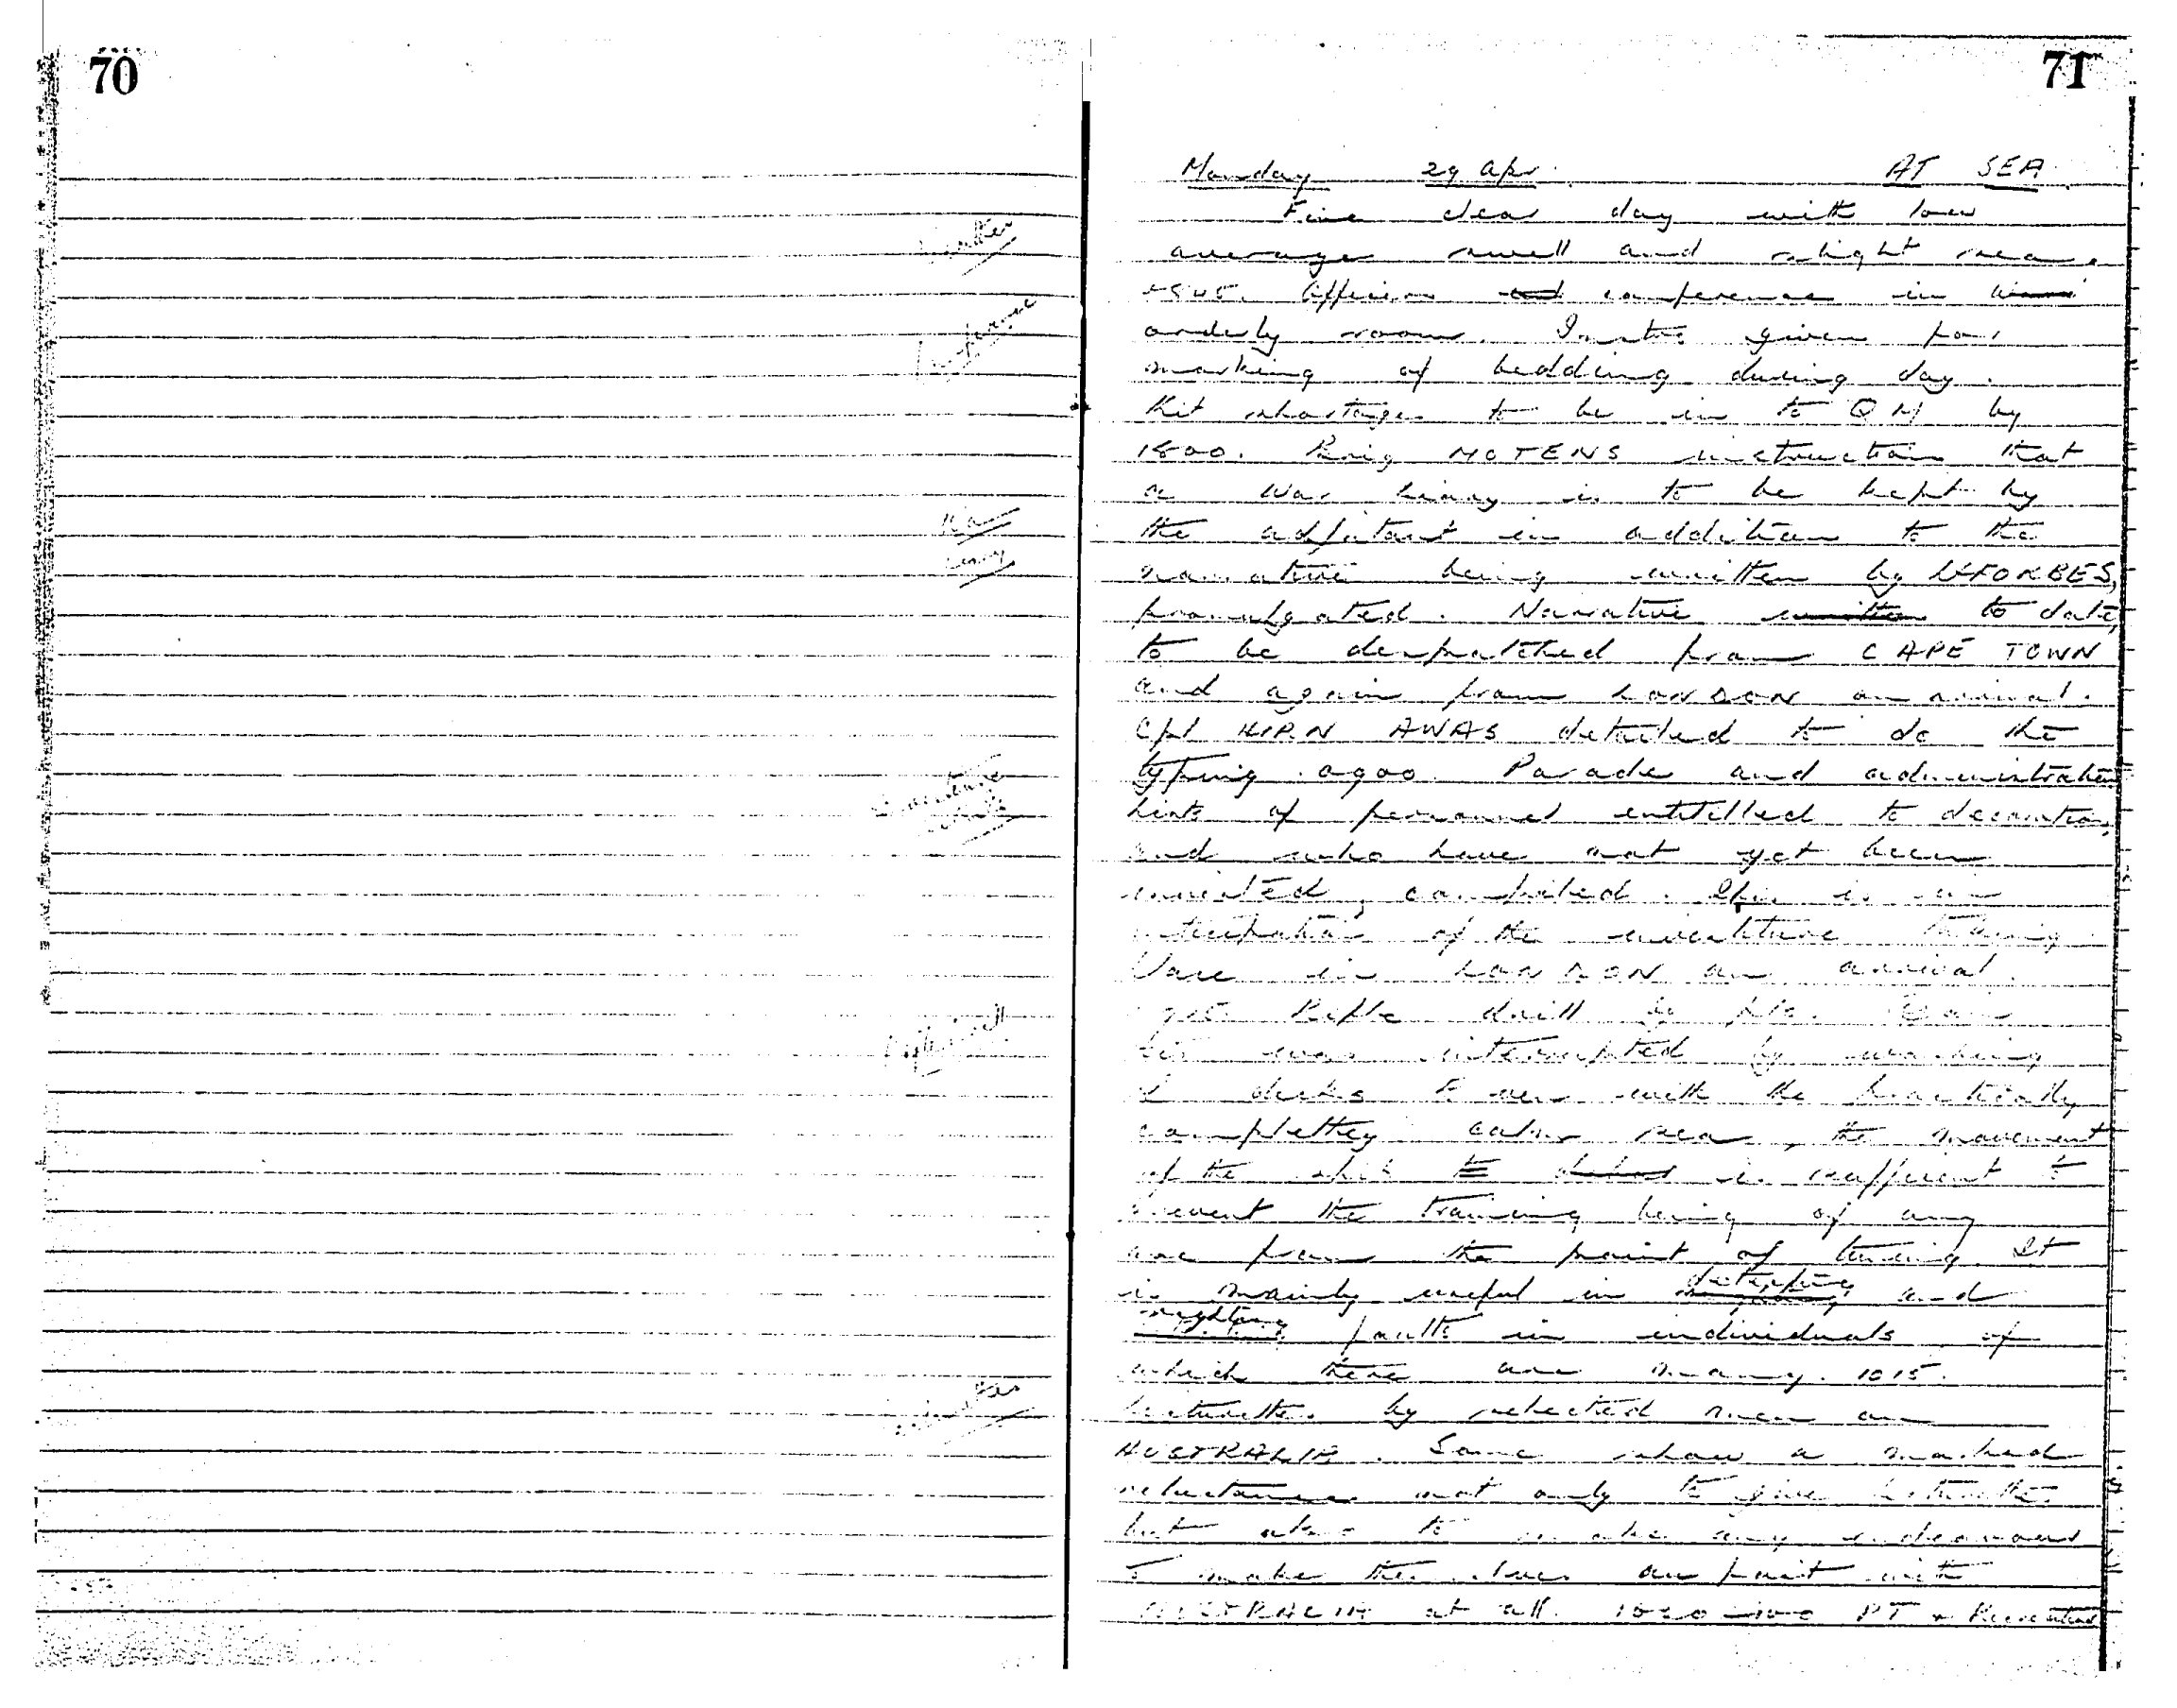 70
71
Monday 29 Apr. AT SEA.
Fine clear day with low
average swell and slight sea.
Officers conference in
orderly room. Instns given for
marking of bedding during day.
Kit shortages to be in to QM by
1800. Brig MOTENS instruction that
a War Diary is to be kept by
the adjutant in addition to the
narrative being written by Lt FORBES,
promulgated. Narrative written to date,
to be despatched from CAPE TOWN
and again from LONDON on arrival.
Cpl HIRN AWAS detailed to do the
typing. 0900. Parade and administration
Lists of personnel entitled to decorations,
and who have not yet been
invested, compiled. This is in
anticipation of the investiture taking
place in LONDON on arrival.
Rifle drill by
was interrupted by washing
of decks. Even with the practically
completley calm sea, the movement
of the ship is sufficient to
prevent the training being of any
use from the point of timing. It
is mainly useful in detecting and
righting faults in individuals of
which there are many. 1015.
Lecturettes by selected men on
AUSTRALIA. Some show a marked
reluctance not only to give lecturettes
but also to make any endeavour
to make themselves au fait with
AUSTRALIA at all. PT & Recreational
War
Diary
Conference
Rifle drill